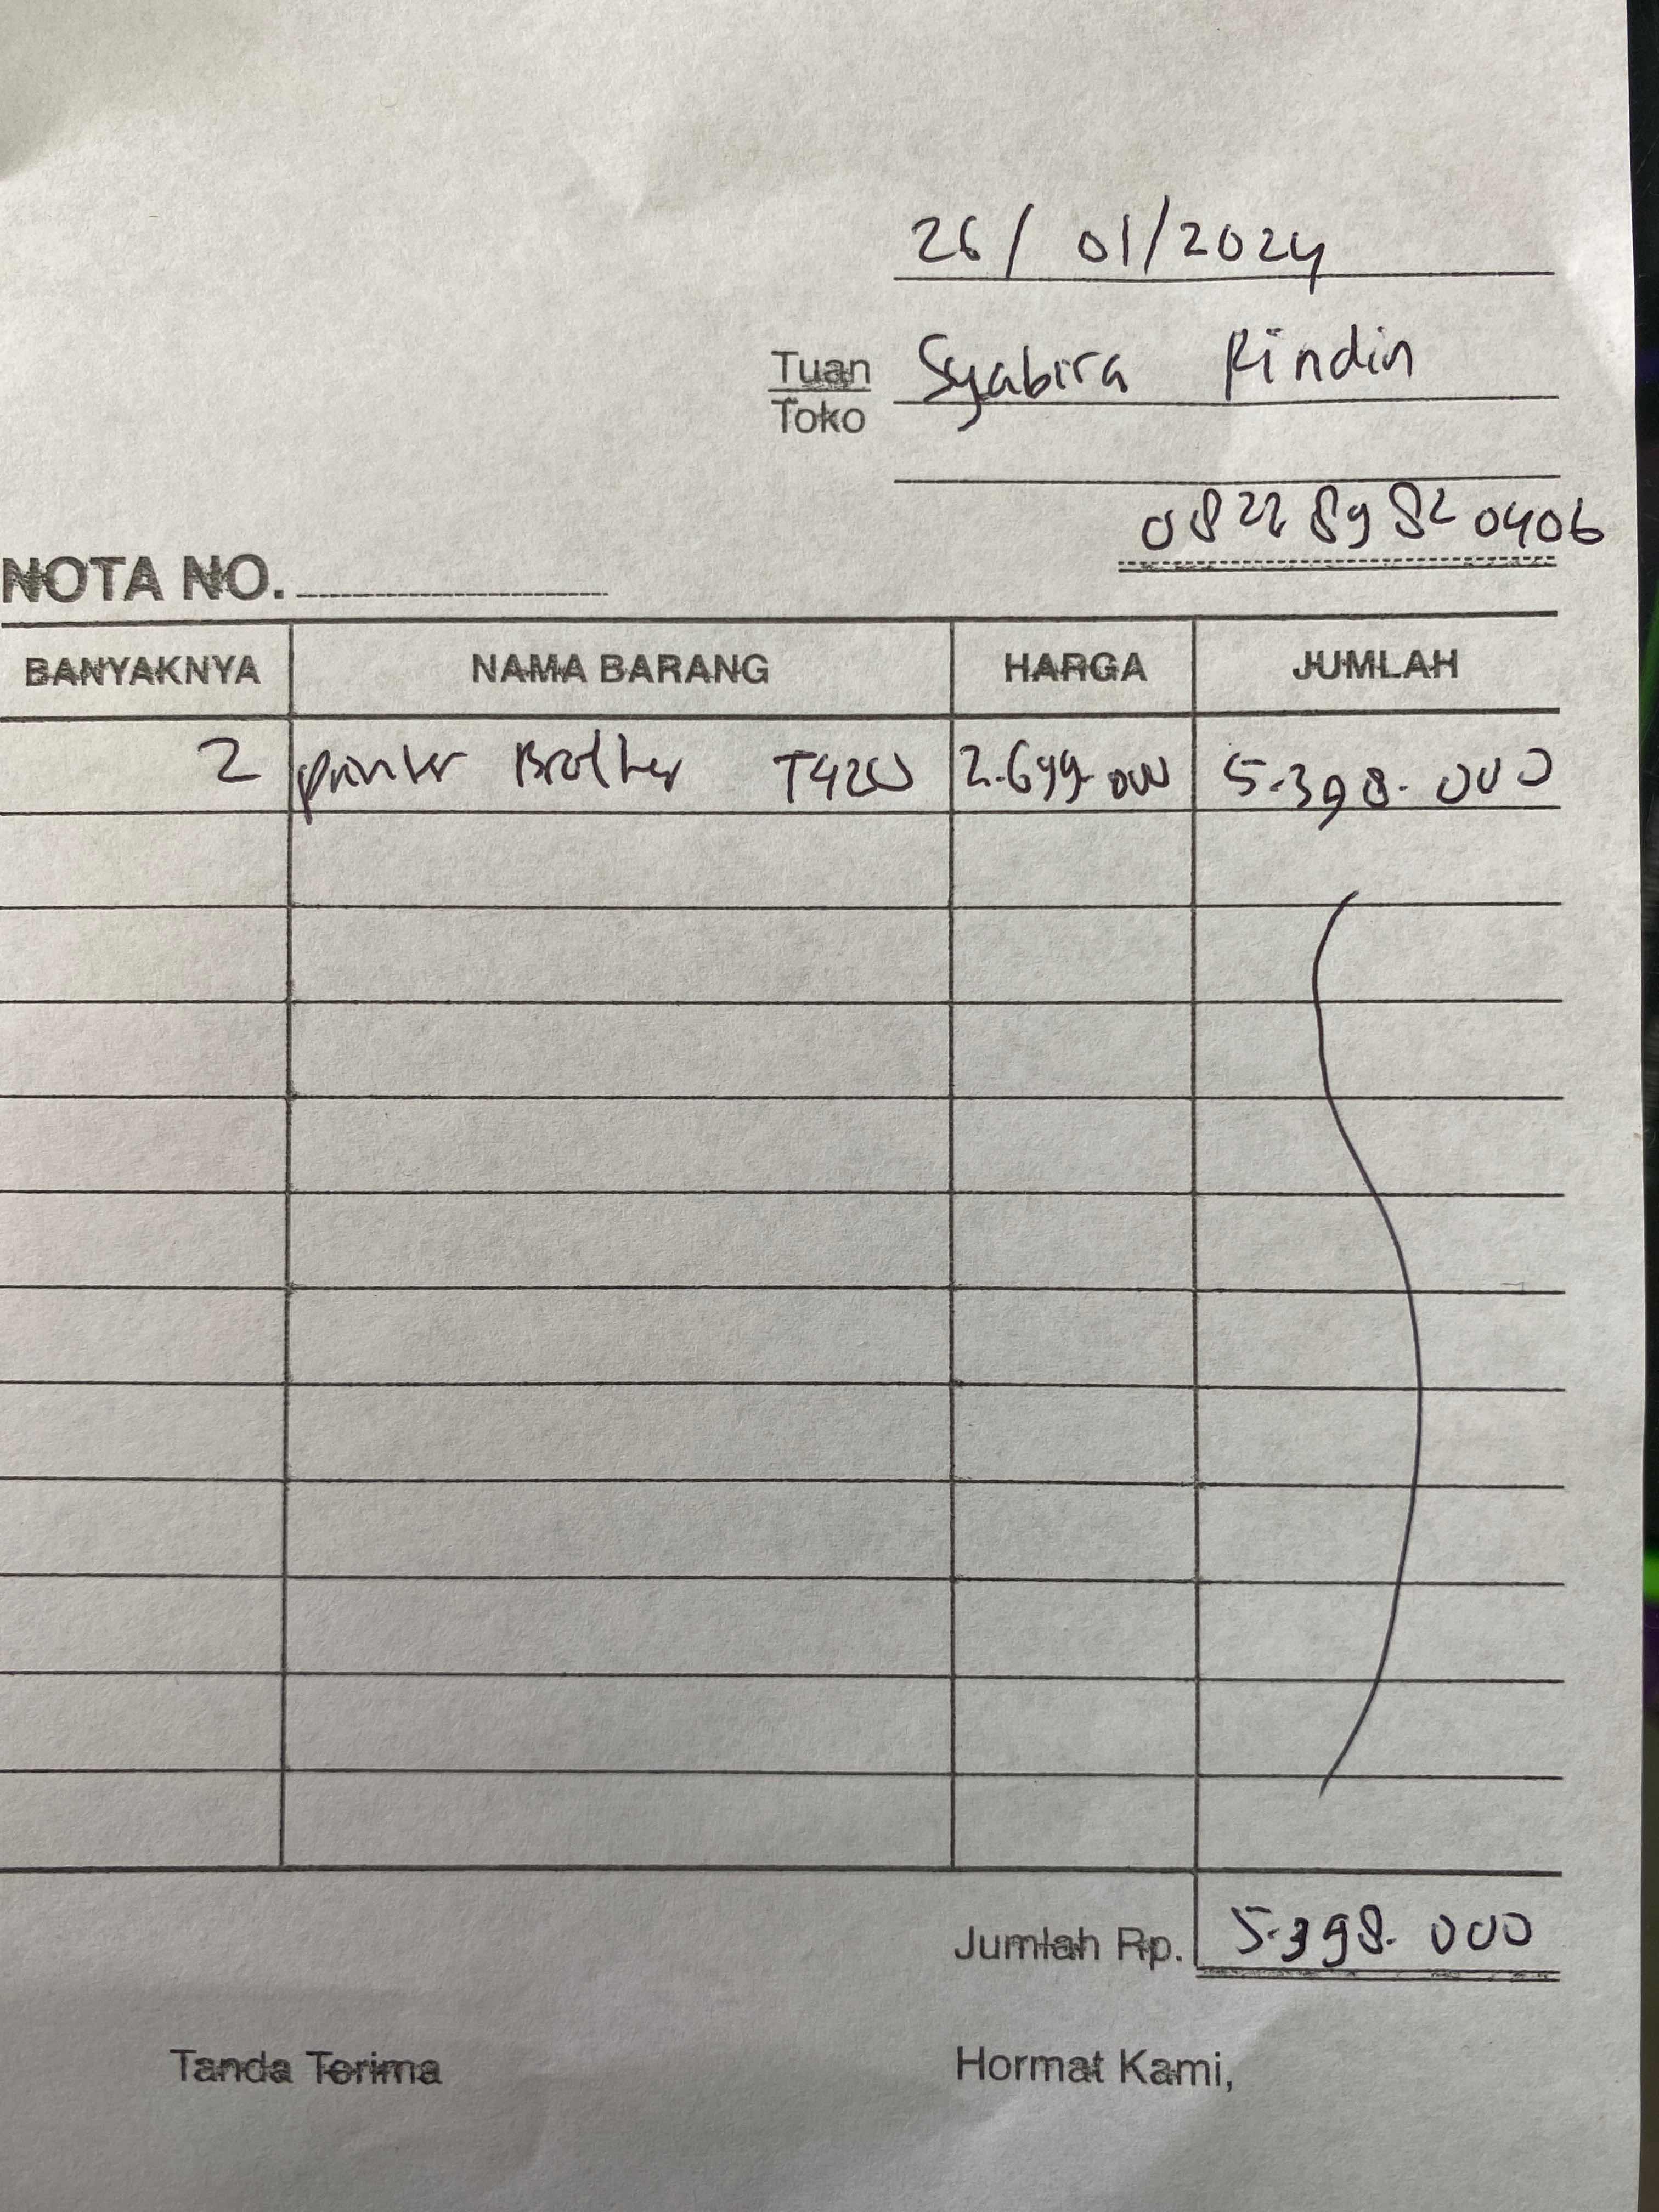 26/01/2024
Tuan Syabira Rindin
Toko
082289820406
NOTA NO.
BANYAKNYA NAMA BARANG HARGA JUMLAH
2 printer Brother T420 2.699.000 5.398.000
Jumlah Rp. 5.398.000
Tanda Terima Hormat Kami,